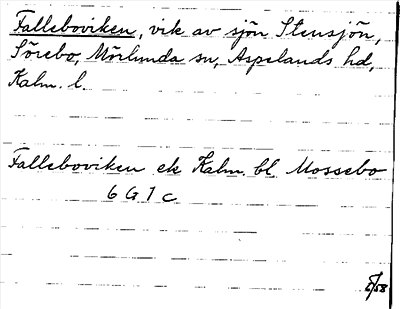 Falleboviken, vik av sjön Stensjön,
Sörebo, Mörlunda sn, Aspelands hd,
Kalm. l.
Falleboviken ek Kalm. bl. Mossebo
6 G 1 c